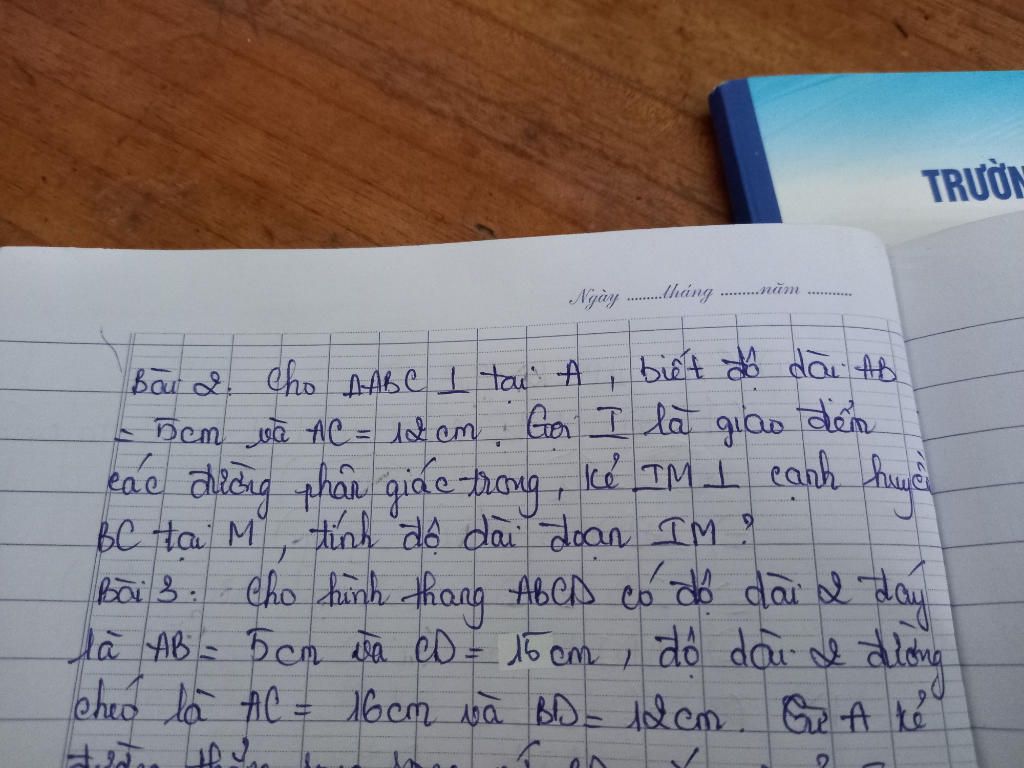 TRƯỜN
Ngày ........tháng .........năm ..........
Bài 2: Cho ΔABC ⊥ tại A, biết độ dài AB
= 5cm và AC = 12cm. Gọi I là giao điểm
các đường phân giác trong, kẻ IM ⊥ cạnh huyền
BC tại M, tính độ dài đoạn IM?
Bài 3: Cho hình thang ABCD có độ dài 2 đáy
là AB = 5cm và CD = 15cm, độ dài 2 đường
chéo là AC = 16cm và BD = 12cm. Từ A kẻ
đường thẳng